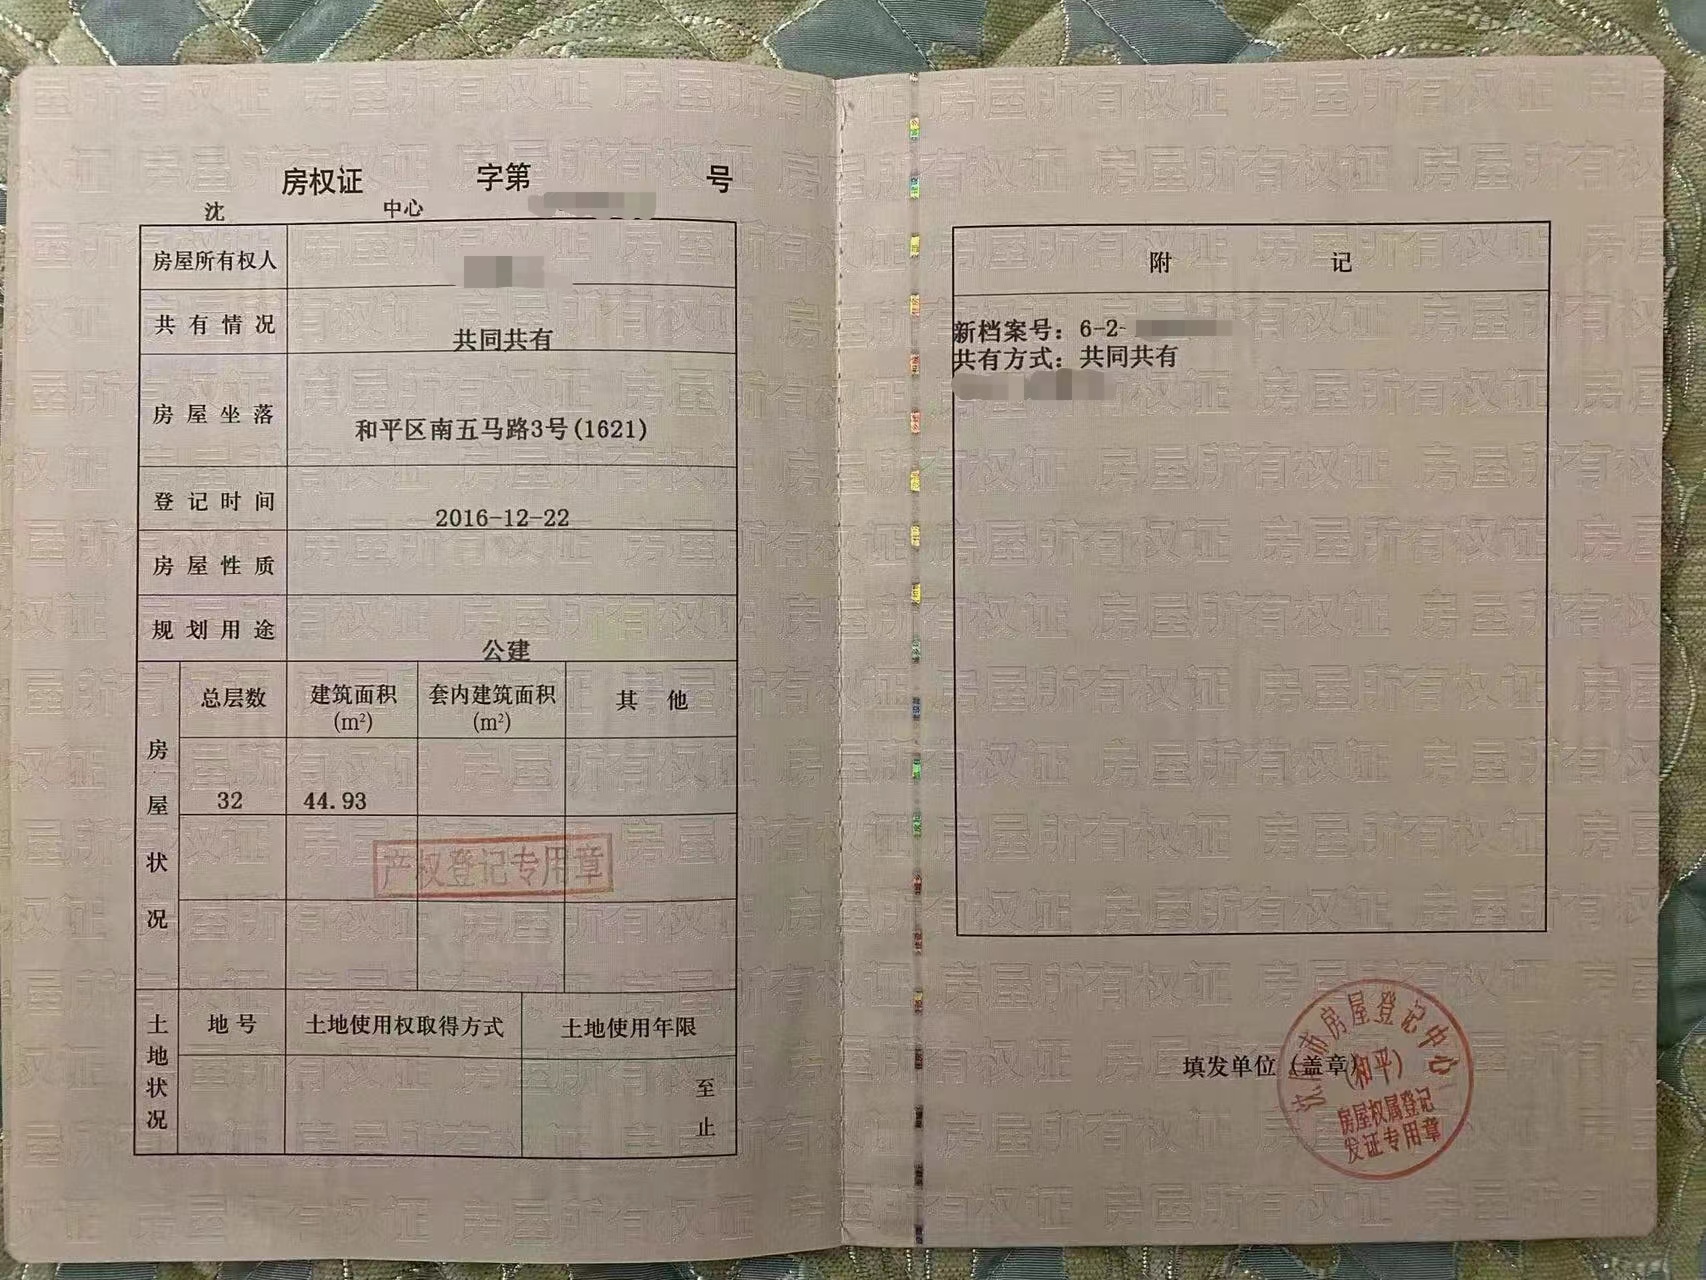 房权证 字第 号
沈 中心
房屋所有权人
共有情况 共同共有
房屋坐落 和平区南五马路3号(1621)
登记时间 2016-12-22
房屋性质
规划用途 公建
房屋状况
总层数 建筑面积(m²) 套内建筑面积(m²) 其他
32 44.93
产权登记专用章
土地状况
地号 土地使用权取得方式 土地使用年限
至
止
附 记
新档案号：6-2-
共有方式：共同共有
填发单位（盖章）
沈阳市房屋登记中心
（和平）
房屋权属登记
发证专用章